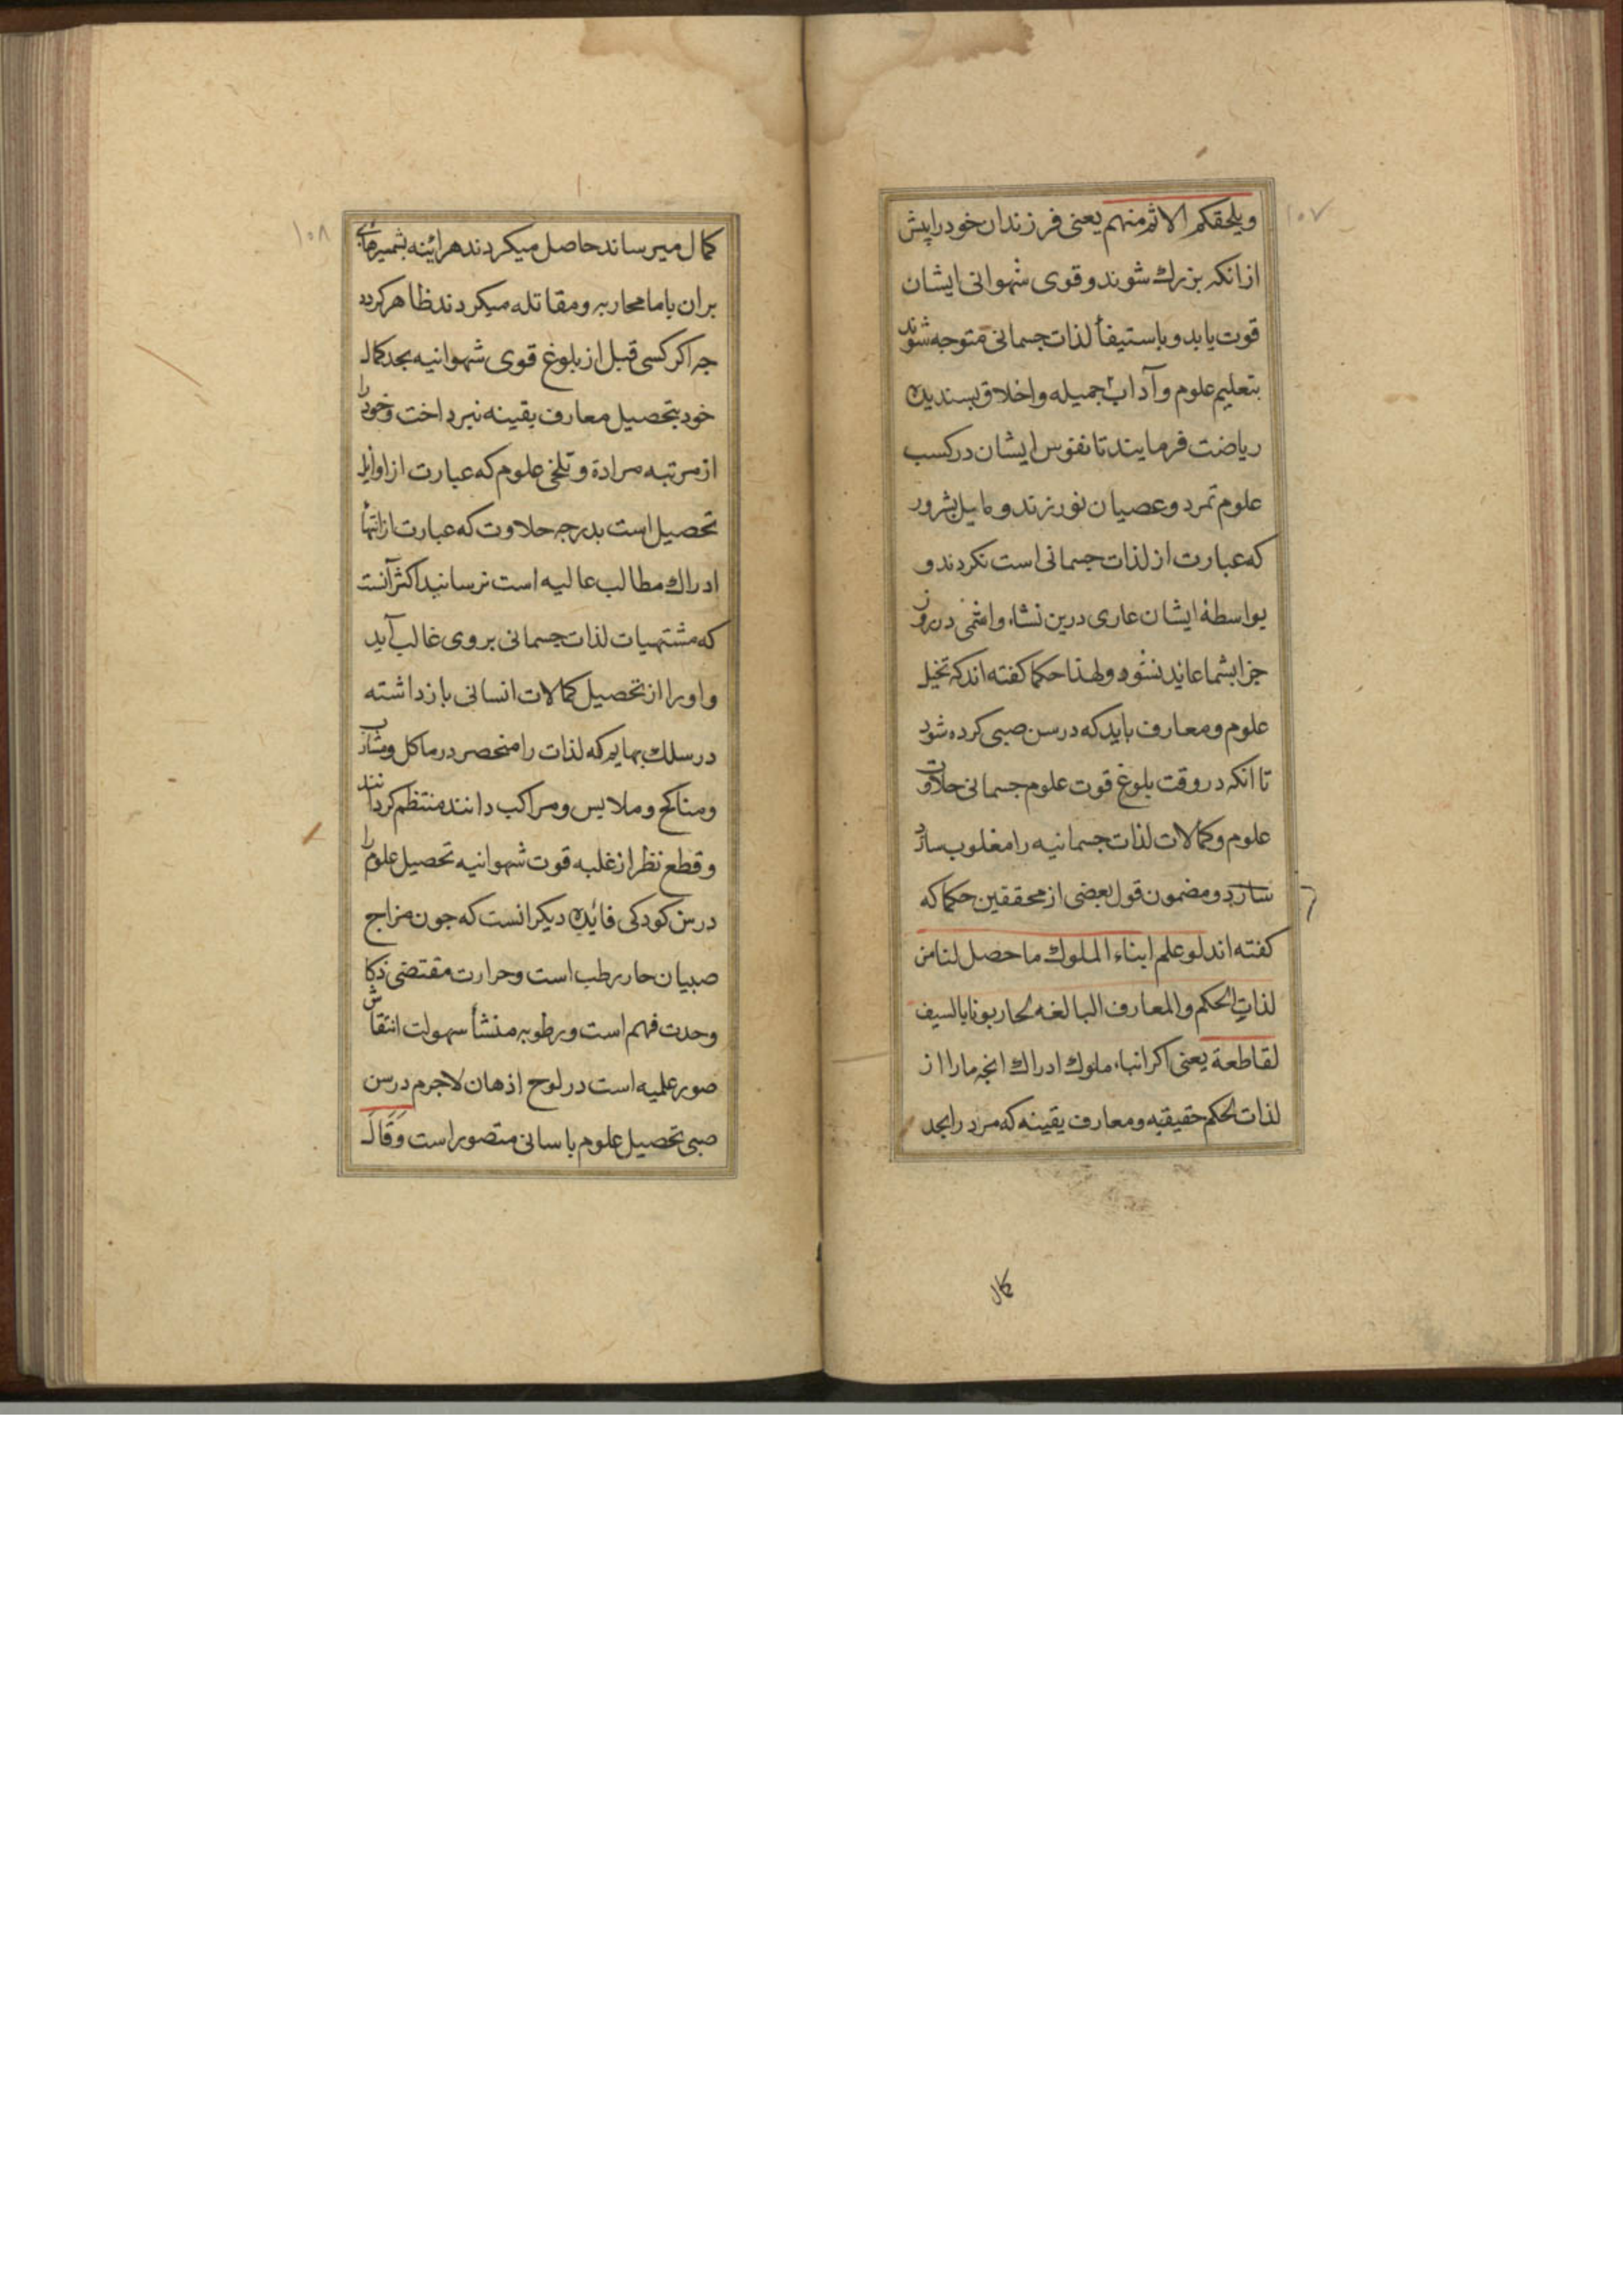 ۱۰۷
ویلحقکم الاثم منهم یعنی فرزندان خود را پیش
ازانکه بزرك شوند و قوی شهوانی ایشان
قوت یابد و باستیفأ لذات جسمانی متوجه شوند
بتعلیم علوم و آداب جمیله و اخلاق پسندیده
ریاضت فرمایند تا نفوس ایشان در کسب
علوم تمرد و عصیان نورزند و مایل بشرور
که عبارت از لذات جسمانی است نکردند و
بواسطهٔ ایشان عاری درین نشاء و اثمی در روز
جزا بشما عاید نشود و لهذا حکما کفته اند که تخیل
علوم و معارف باید که در سن صبی کرده شود
تا انکه در وقت بلوغ قوت علوم جسمانی حلاوت
علوم و کمالات لذات جسمانیه را مغلوب سازد
سازد و مضمون قول بعضی از محققین حکما که
کفته اند لو علم ابناء الملوك ما حصل لنا من
لذات الحکم و المعارف البالغه لحاربونا بالسیف
لقاطعة یعنی اکر انباء ملوك ادراك انچه ما را از
لذات لحکم حقیقیه و معارف یقینه که مرد را بحد
کمال
۱۰۸
کمال میرساند حاصل میکردند هراینه بشمیرهای
بران باما محاربه و مقاتله میکردند ظاهر کردد
چه اکر کسی قبل از بلوغ قوی شهوانیه بحد کمال
خود بتحصیل معارف یقینه نپرداخت و خود را
از مرتبه مرادة و تلخی علوم که عبارت از اوایل
تحصیل است بدرجه حلاوت که عبارت از انتهأ
ادراك مطالب عالیه است نرسانید اکثر آنست
که مشتهیات لذات جسمانی بر وی غالب آید
و او را از تحصیل کمالات انسانی باز داشته
در سلك بهایم که لذات را منحصر در ماکل و مشارب
و مناکح و ملابس و مراکب دانند منتظم کردانند
و قطع نظر از غلبه قوت شهوانیه تحصیل علوم را
در سن کودکی فایده دیکر انست که چون مزاج
صبیان حار رطب است و حرارت مقتضی ذکا
وحدت فهم است و رطوبه منشأ سهولت انتقاش
صور علمیه است در لوح اذهان لاجرم در سن
صبی تحصیل علوم باسانی متصور است وَقَالَ